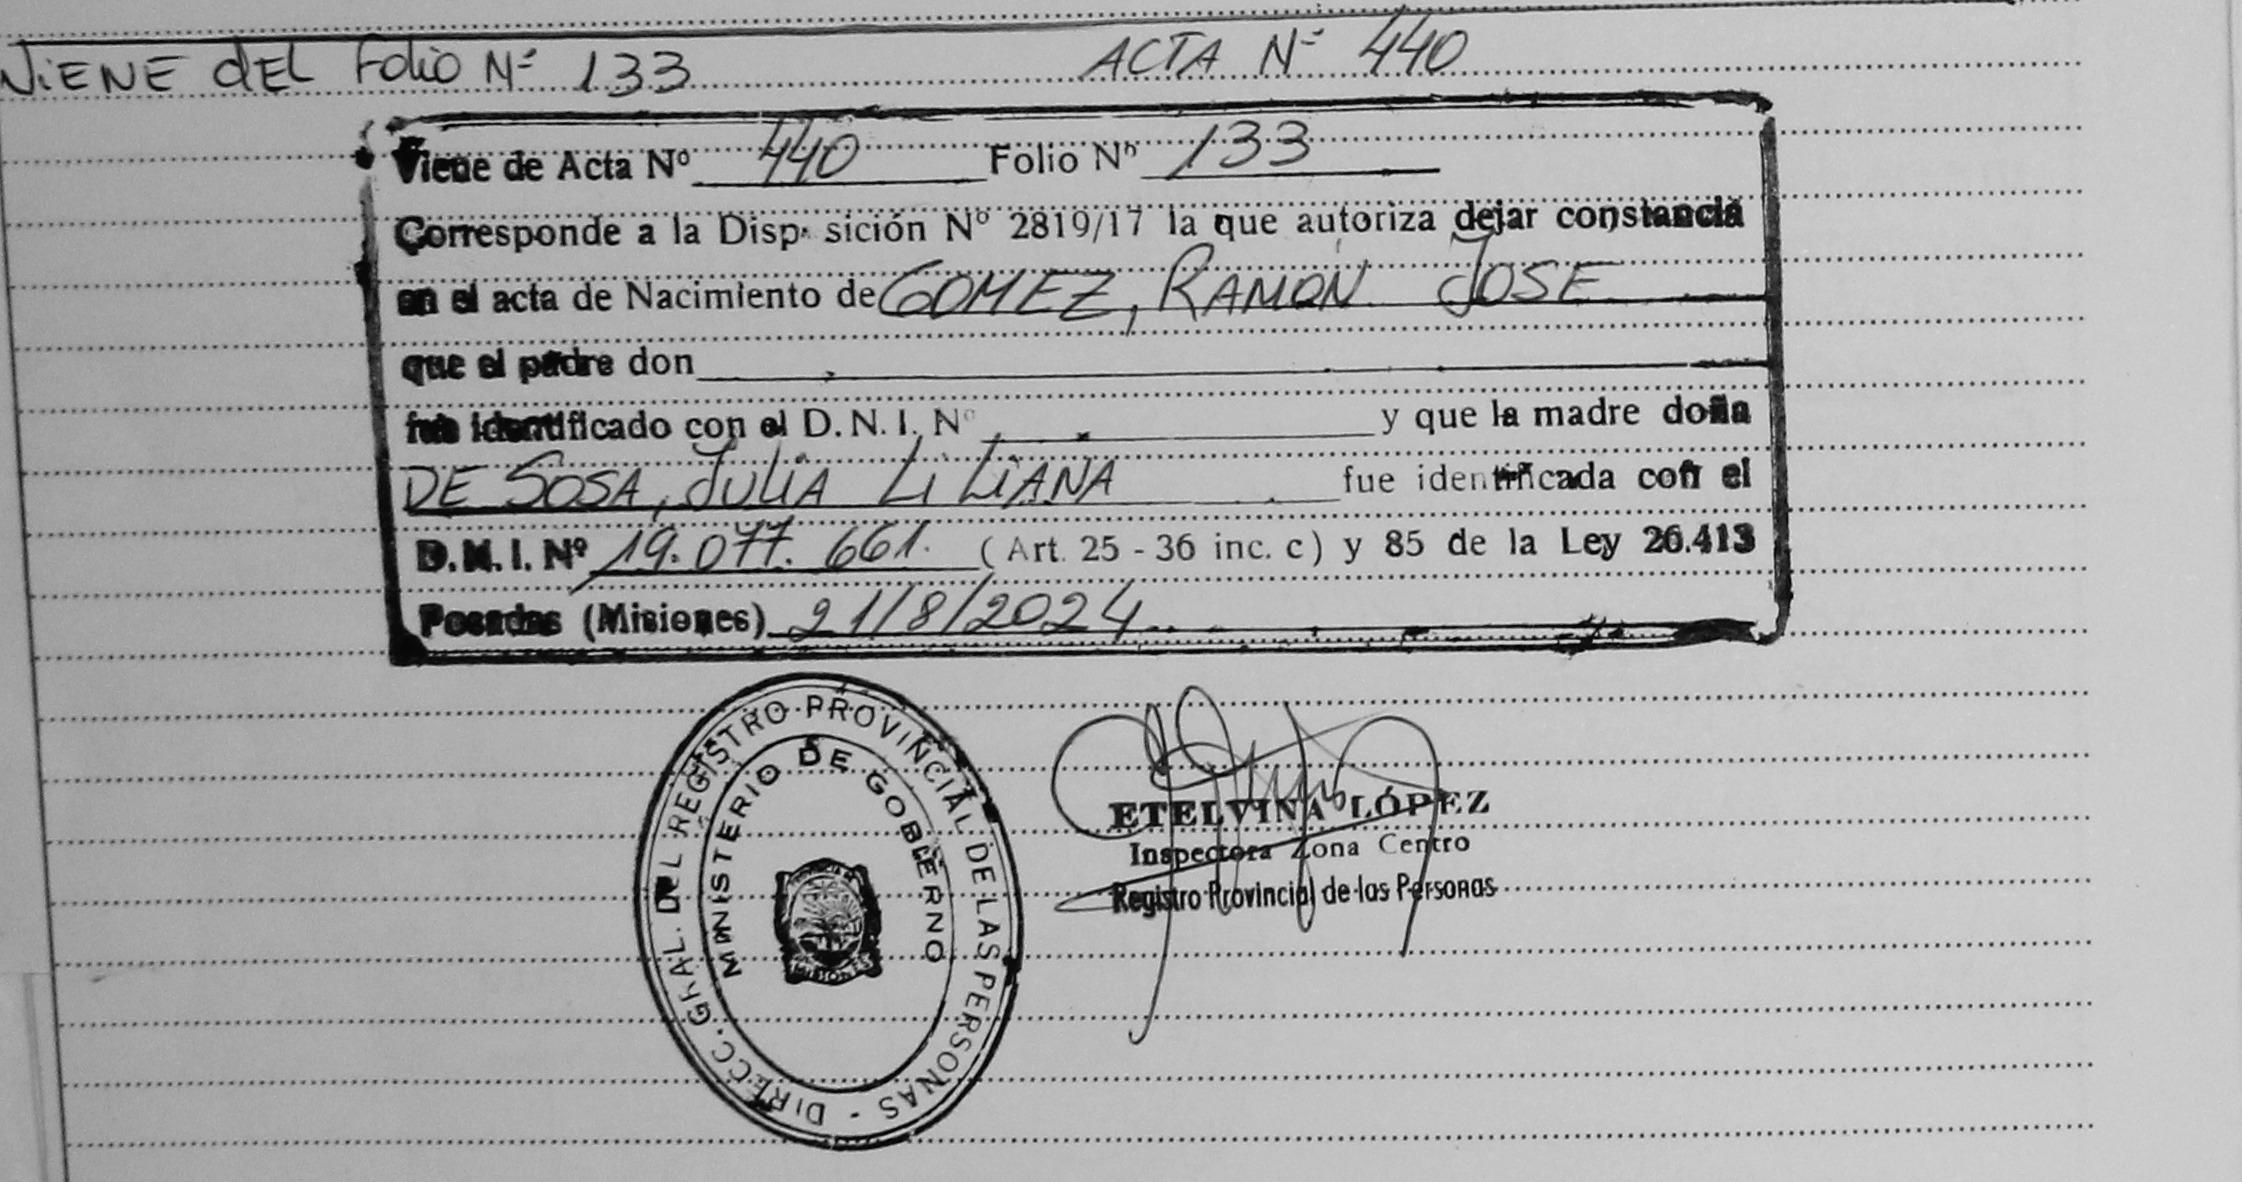 VIENE dEL Folio Nº 133 ACTA Nº 440
Viene de Acta Nº 440 Folio Nº 133
Corresponde a la Disp. sición Nº 2819/17 la que autoriza dejar constancia
en el acta de Nacimiento de GOMEZ, RAMON JOSE
que el padre don
fue identificado con el D. N. I. Nº y que la madre doña
DE SOSA, JULIA LILIANA fue identificada con el
D. N. I. Nº 19.077.661. (Art. 25 - 36 inc. c) y 85 de la Ley 26.413
Posadas (Misiones) 21/8/2024
DIRECC. GRAL. DEL REGISTRO PROVINCIAL DE LAS PERSONAS -
MINISTERIO DE GOBIERNO
MISIONES
ETELVINA LÓPEZ
Inspectora Zona Centro
Registro Provincial de las Personas